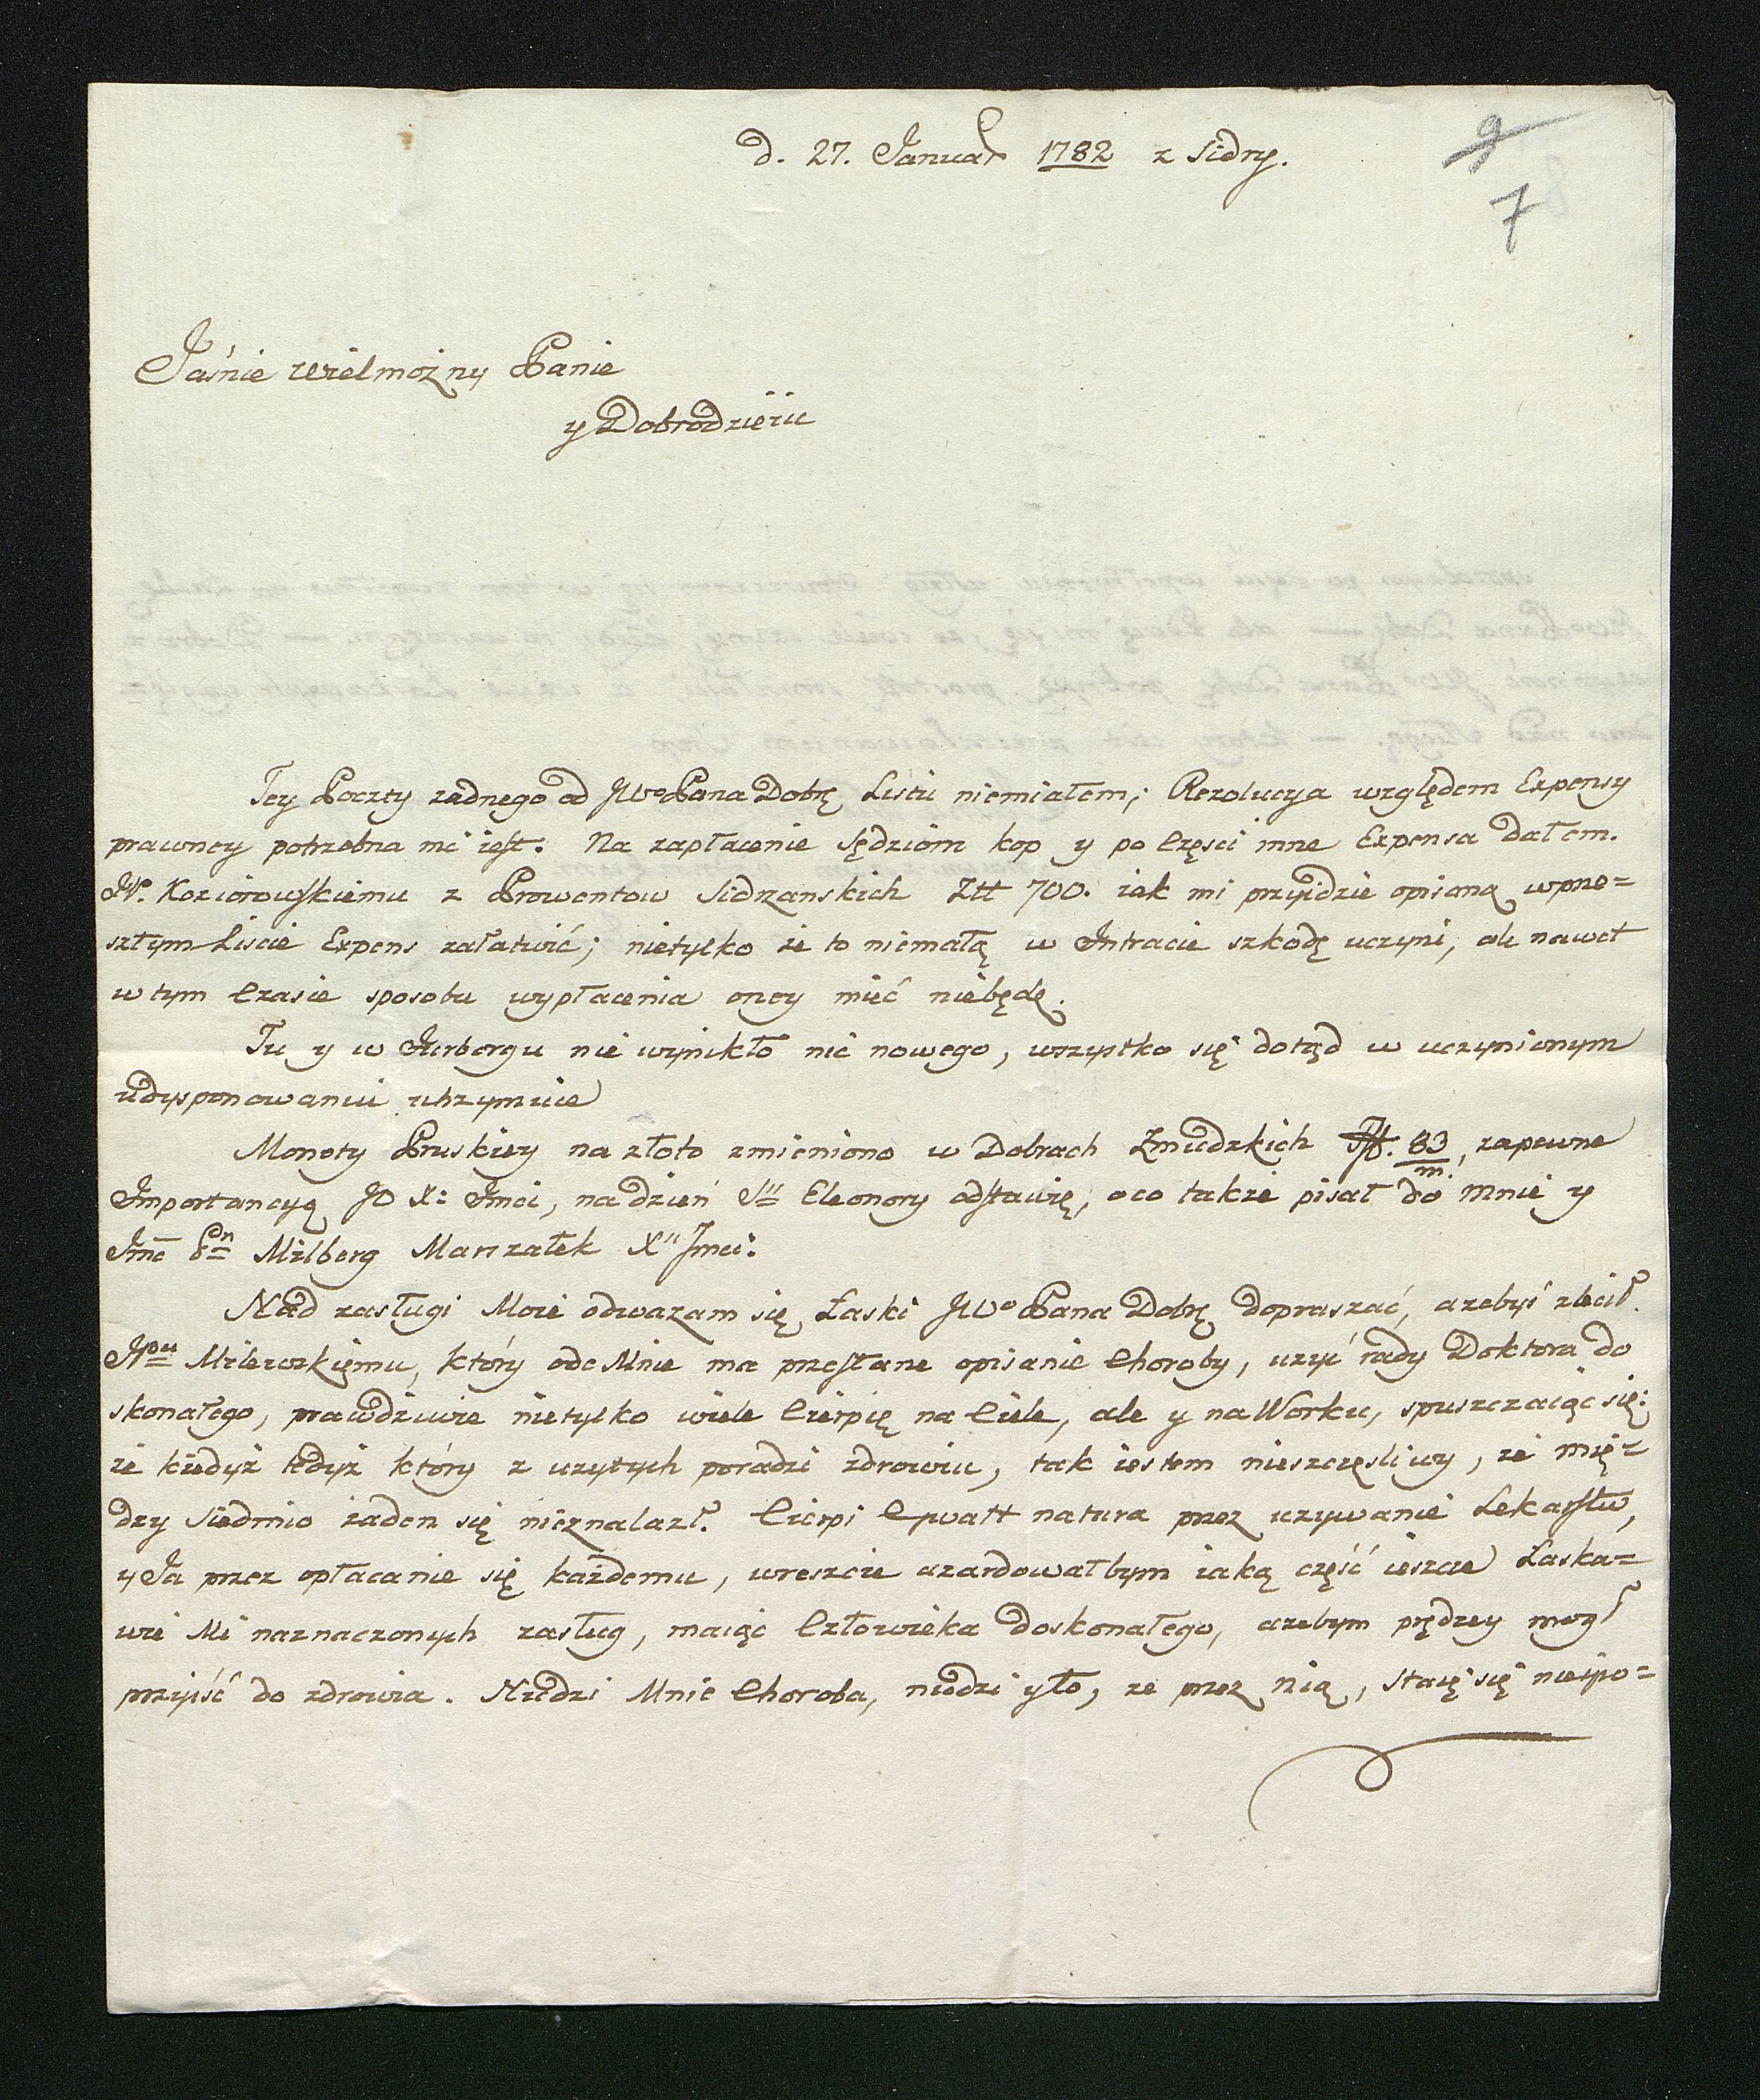 d. 27. Januar 1782 z Sidry.
9
7
Jaśnie Wielmożny Panie
y Dobrodzieiu
Tey Poczty zadnego od JWo Pana Dobrę Listu niemiałem; Rezolucya względem Expensy
prawney potrzebna mi iest. Na zapłacenie Sędziom kop y po Częsci inne Expensa dałem.
Koziorowskiemu z Prowentow Sidrzanskich Ztt 700. iak mi przyidzie opisaną wprze=
szłym Liscie Expens załatwić; nietylko że to niemałą w Intracie szkodę uczyni, ale nawet
w tym Czasie sposobu wypłacenia oney mieć niebędę.
Tu y w Jurborgu nie wynikło nic nowego, wszystko się dotąd w uczynionym
udysponowaniu utrzymuie
Monety Pruskiey na złoto zmieniono w Dobrach Zmudzkich 83/m, zapewne
Importancyą JO X: Jmci, na dzień Stt Eleonory odstawię, o co takze pisał do Mnie y
Jmć Pan Milberg Marszałek Xtt Jmci.
Nad zasługi Moie odwazam się Łaski JWo Pana Dobrę dopraszać, azebyś zlecił
Milewskiemu, który odemnie ma przesłane opisanie Choroby, uzyć rady Doktora do
skonałego, prawdziwie nietylko wiele Cierpię na Ciele, ale y na Worku, spuszczaiąc się:
że kiedyż tedyż który z uzytych poradzi zdrowiu, tak iestem nieszczęsliwy, że mię=
dzy Siedmio żaden się nieznalazł. Cierpi Gwałt natura przez uzywanie Lekarstw,
y Ja przez opłacanie się każdemu, wreszcie azardowałbym iaką część ieszcze Łaska=
wie Mi naznaczonych zasług, maiąc Człowieka doskonałego, azebym prędzey mogł
przyiść do zdrowia. Nudzi Mnie Choroba, nudzi y to, ze przez nią, staię się niespo=